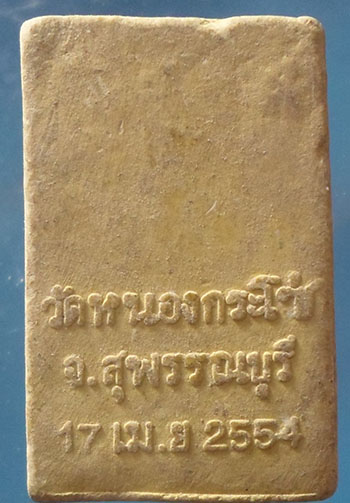 วัดหนองกระโซ่
จ.สุพรรณบุรี
17 เม.ย 2554